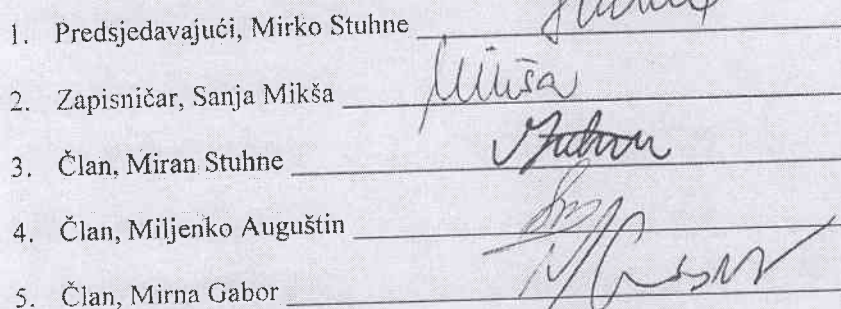 1. Predsjedavajući, Mirko Stuhne
2. Zapisničar, Sanja Mikša Mikša
3. Član, Miran Stuhne
4. Član, Miljenko Auguštin
5. Član, Mirna Gabor